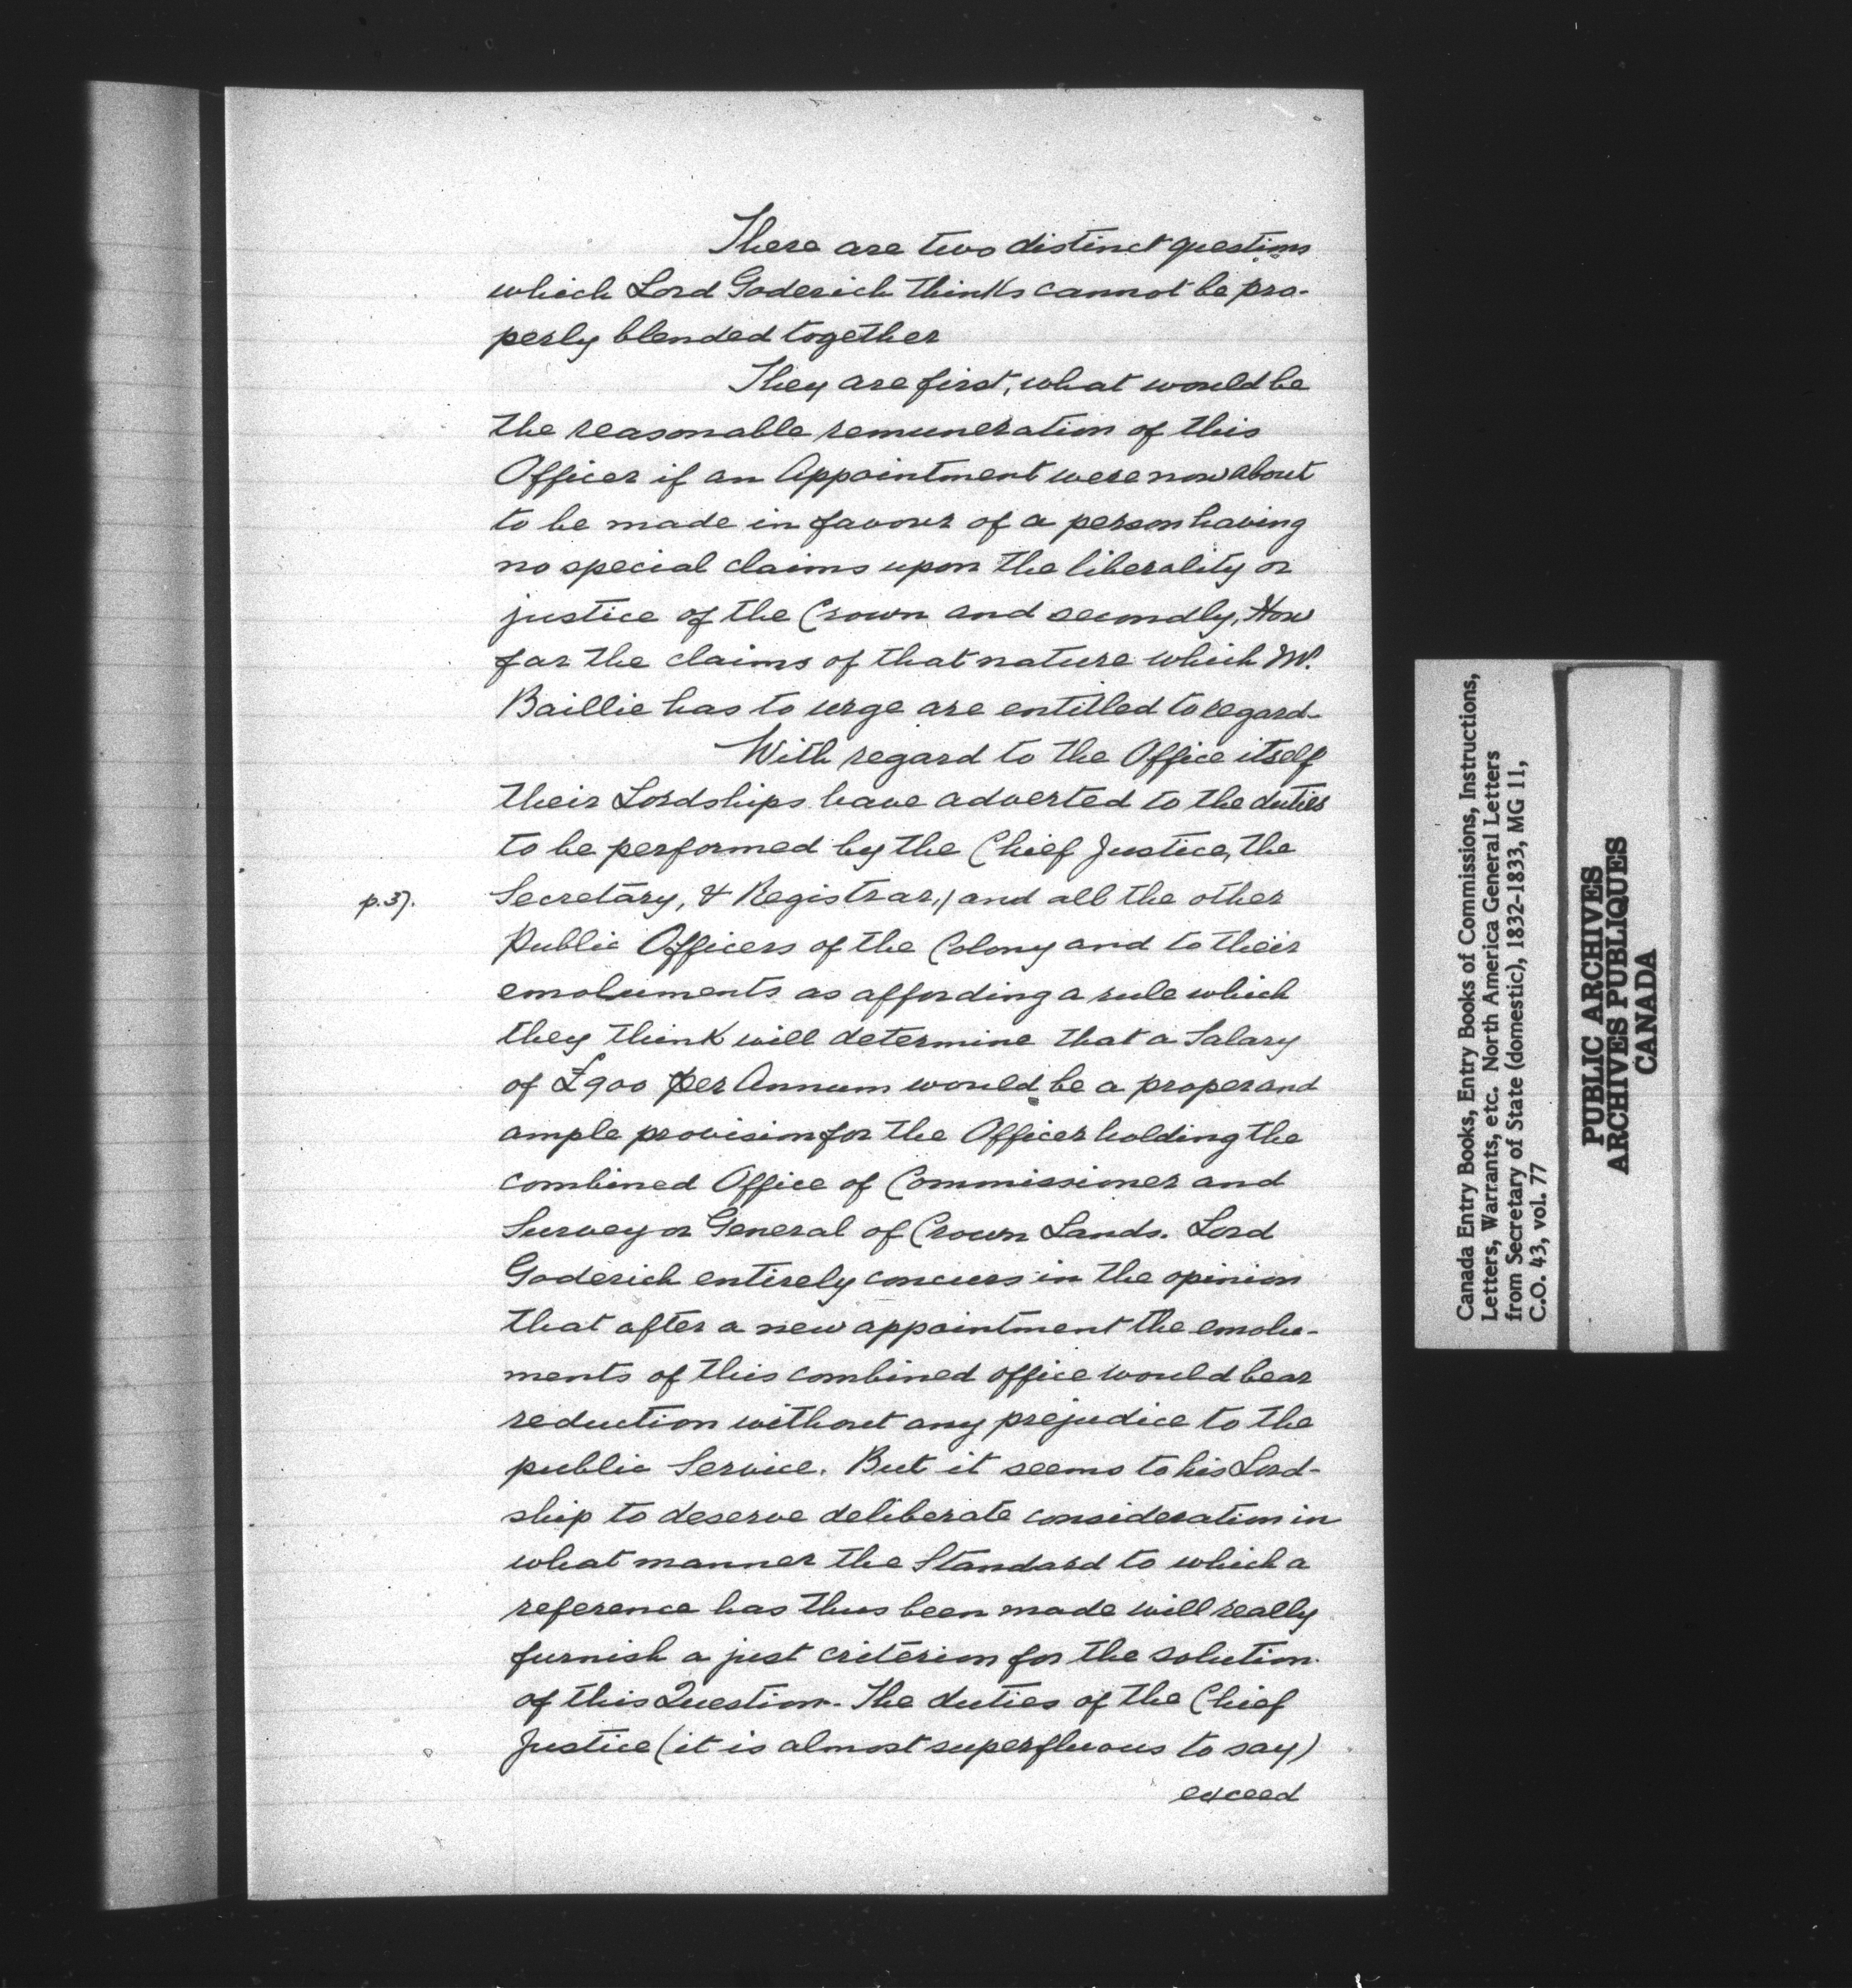 There are two distinct questions
which Lord Goderich thinks cannot be pro-
perly blended together
They are first, what would be
the reasonable remuneration of this
Officer if an Appointment were now about
to be made in favour of a person having
no special claims upon the liberality or
justice of the Crown and secondly, How
far the claims of that nature which Mr.
Baillie has to urge are entitled to regard-
With regard to the Office itself
their Lordships have adverted to the duties
to be performed by the Chief Justice, the
p.37. Secretary, & Registrar,) and all the other
Public Officers of the Colony and to their
emoluments as affording a rule which
they think will determine that a Salary
of £900 per Annum would be a proper and
ample provision for the Officer holding the
combined Office of Commissioner and
Surveyor General of Crown Lands. Lord
Goderich entirely concurs in the opinion
that after a new appointment the emolu-
ments of this combined office would bear
reduction without any prejudice to the
public Service. But it seems to his Lord-
ship to deserve deliberate consideration in
what manner the Standard to which a
reference has thus been made will really
furnish a just criterion for the solution
of this Question. The duties of the Chief
Justice (it is almost superfluous to say)
exceed
Canada Entry Books, Entry Books of Commissions, Instructions,
Letters, Warrants, etc. North America General Letters
from Secretary of State (domestic), 1832-1833, MG 11,
C.O. 43, vol. 77
PUBLIC ARCHIVES
ARCHIVES PUBLIQUES
CANADA